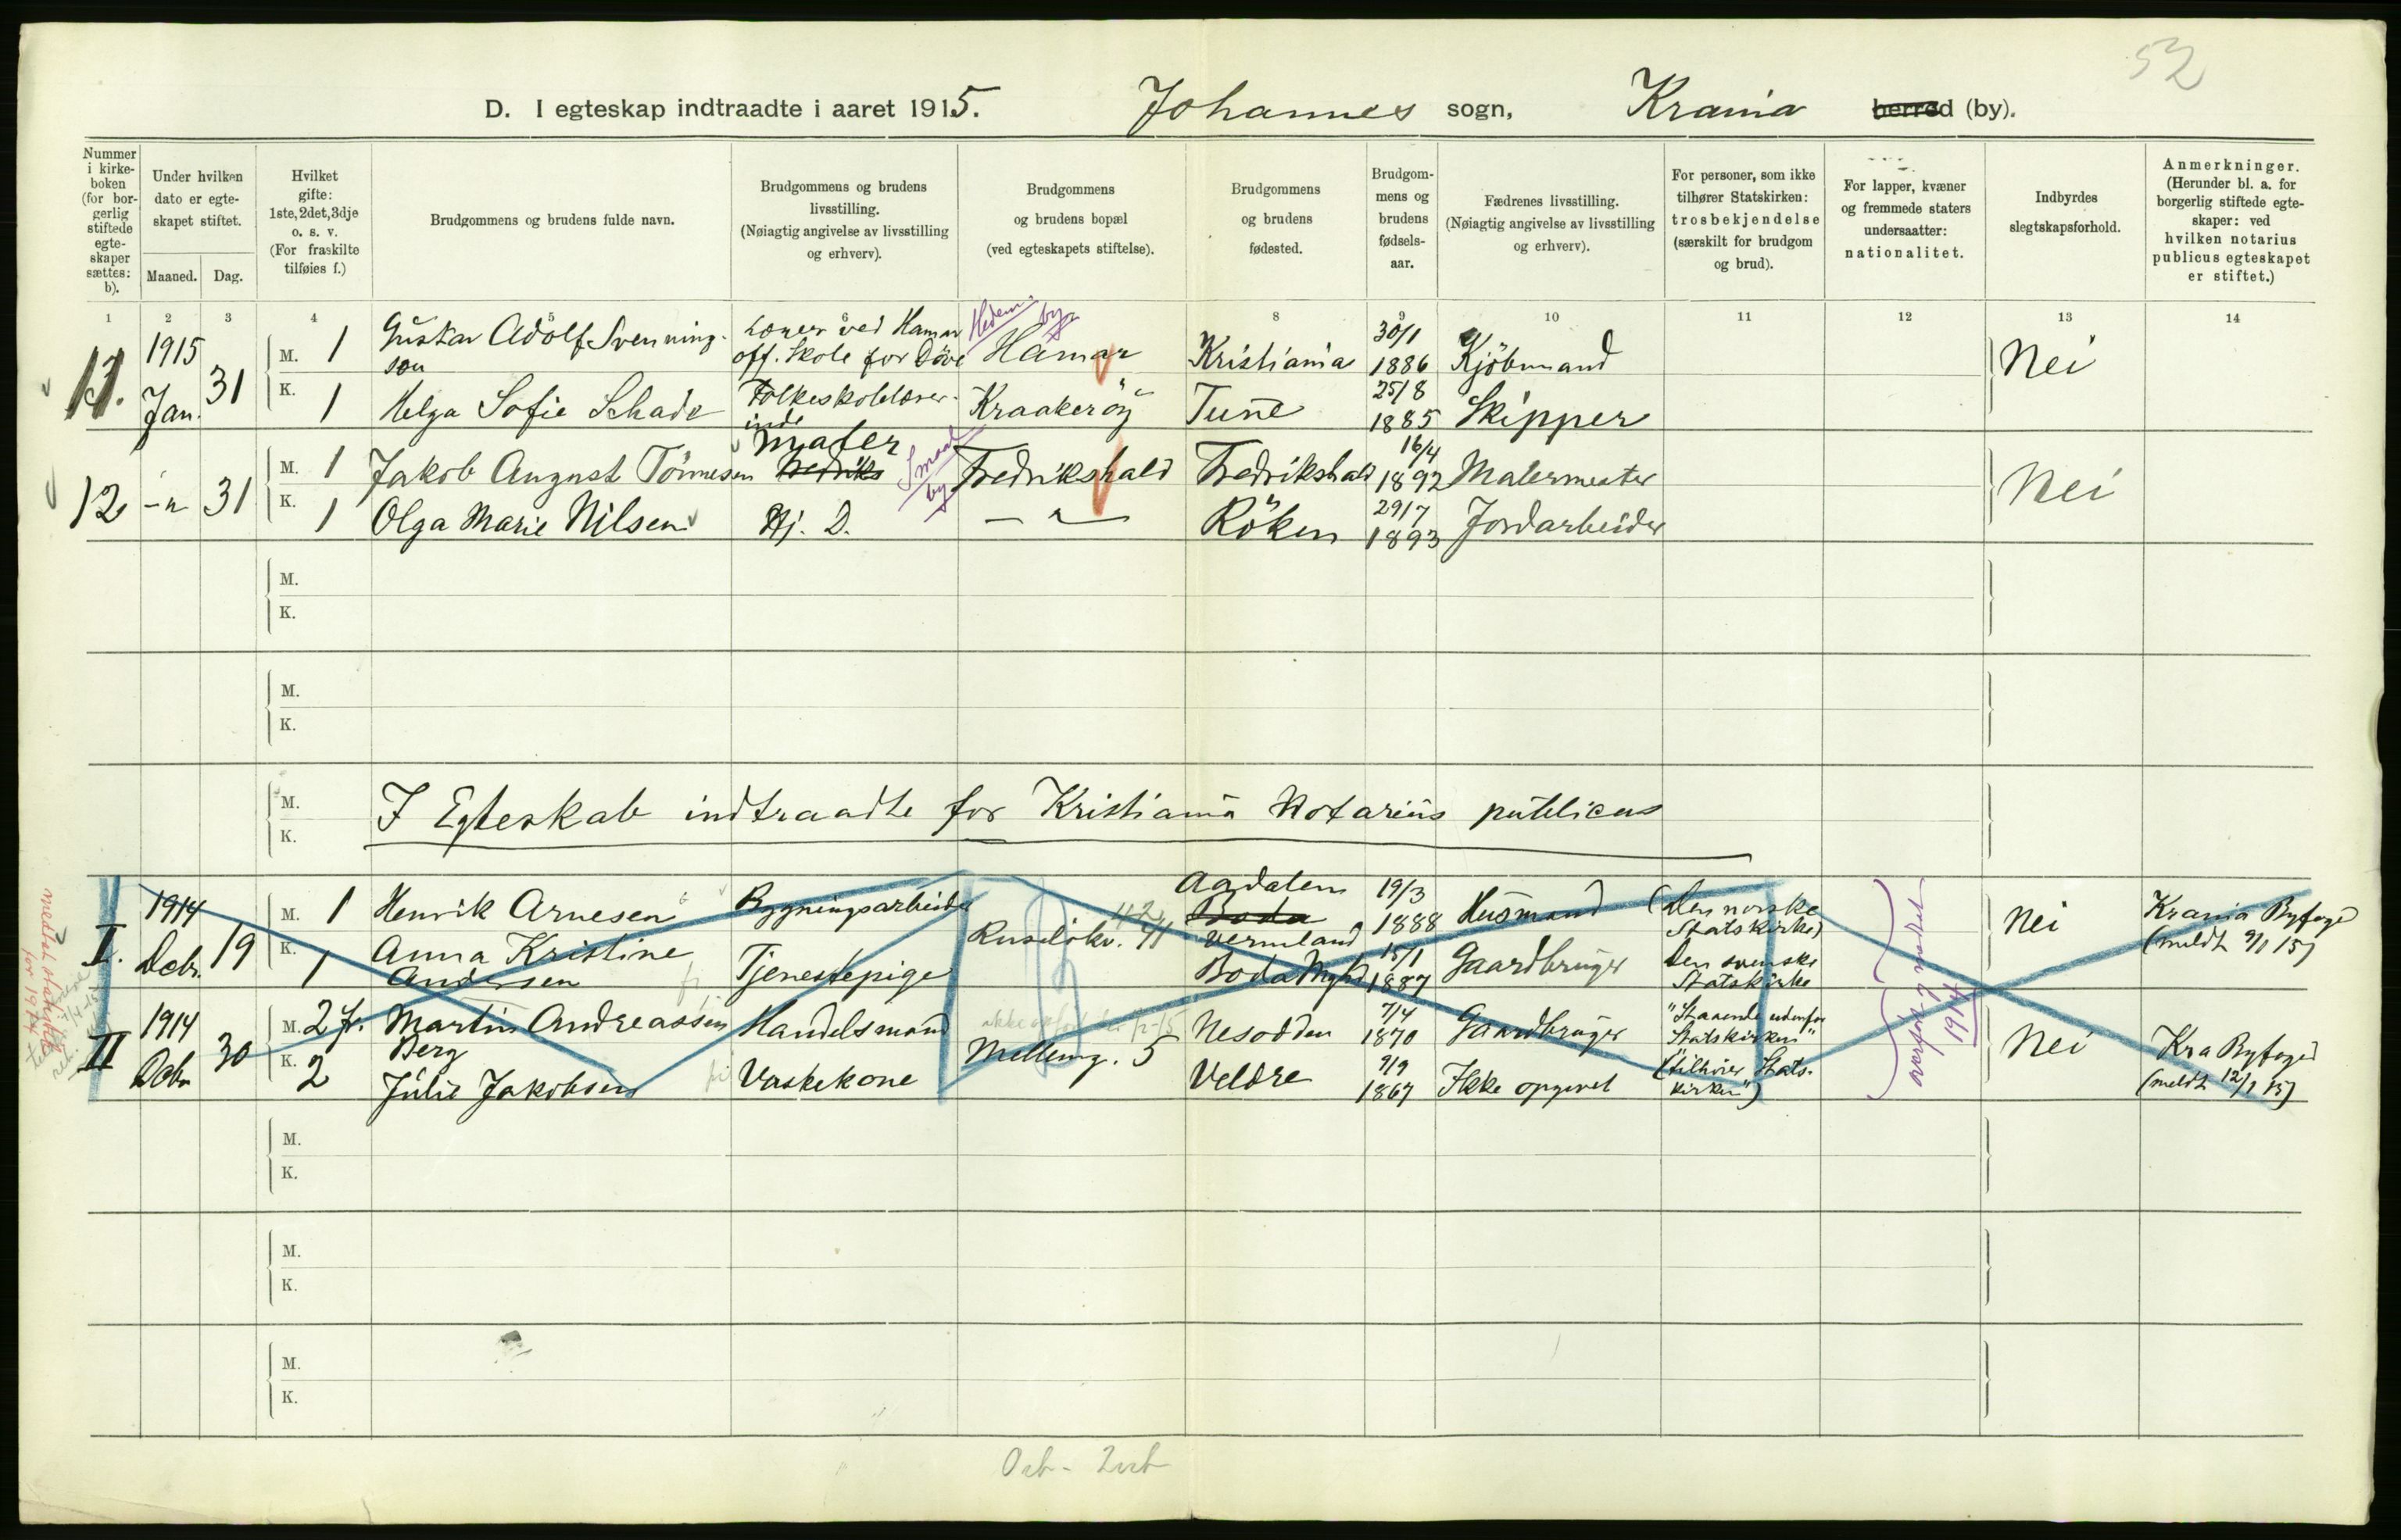 52
D. I egteskap indtraadte i aaret 1915. Johannes sogn, Krania berred (by).
Nummer i kirke-boken (for bor-gerlig stiftede egte-skaper sættes: b).
Under hvilken dato er egte-skapet stiftet.
Maaned. Dag.
Hvilket gifte: 1ste, 2det, 3dje o. s. v. (For fraskilte tilføies f.)
Brudgommens og brudens fulde navn.
Brudgommens og brudens livsstilling. (Nøiagtig angivelse av livsstilling og erhverv).
Brudgommens og brudens bopæl (ved egteskapets stiftelse).
Brudgommens og brudens fødested.
Brudgom-mens og brudens fødsels-aar.
Fædrenes livsstilling. (Nøiagtig angivelse av livsstilling og erhverv).
For personer, som ikke tilhører Statskirken: trosbekjendelse (særskilt for brudgom og brud).
For lapper, kvæner og fremmede staters undersaatter: nationalitet.
Indbyrdes slegtskapsforhold.
Anmerkninger. (Herunder bl. a. for borgerlig stiftede egte-skaper: ved hvilken notarius publicus egteskapet er stiftet.)
1 2 3 4 5 6 7 8 9 10 11 12 13 14
11. 1915 Jan. 31
M. 1 Gustav Adolf Svenning-son Lærer ved Hamar off. Skole for Døve Hamar Kristiania 30/1 1886 Kjöbmand Nei
Hedem. by
K. 1 Helga Sofie Schade Folkeskolelærer-inde Kraakeröy Tune 25/8 1885 Skipper
12 -"- 31
M. 1 Jakob August Tönnesen Maler Fredrikshald Fredrikshald 16/4 1892 Malermester Nei
Smaal by
K. 1 Olga Marie Nilsen Hj. D. -"- Röken 29/7 1893 Jordarbeider
M.
K.
M.
K.
M.
I Egteskab indtraadte for Kristiania Notarius publicus
K.
I. 1914 Decbr. 19
M. 1 Henrik Arnesen Bygningsarbeider Ruselökv. 41 Aadalen Boda Vermland 19/3 1888 Husmand (Den norske Statskirke) Nei Krania Byfoged (meldt 9/1 15)
K. 1 Anna Kristine Andersen Tjenestepige Boda 15/1 1887 Gaardbruger Den svenske Statskirke
II 1914 Decbr 30
M. 2 f. Martin Andreassen Berg Handelsmand Mellemg. 5 Nesodden 7/4 1870 Gaardbruger "Staaende udenfor Statskirken" Nei Kra Byfoged (meldt 12/1 15)
K. 2 Julie Jakobsen Vaskekone Veldre 9/9 1867 Ikke opgivet ("tilhører Stats-kirken")
overført 1914
M.
K.
M.
K.
M.
K.